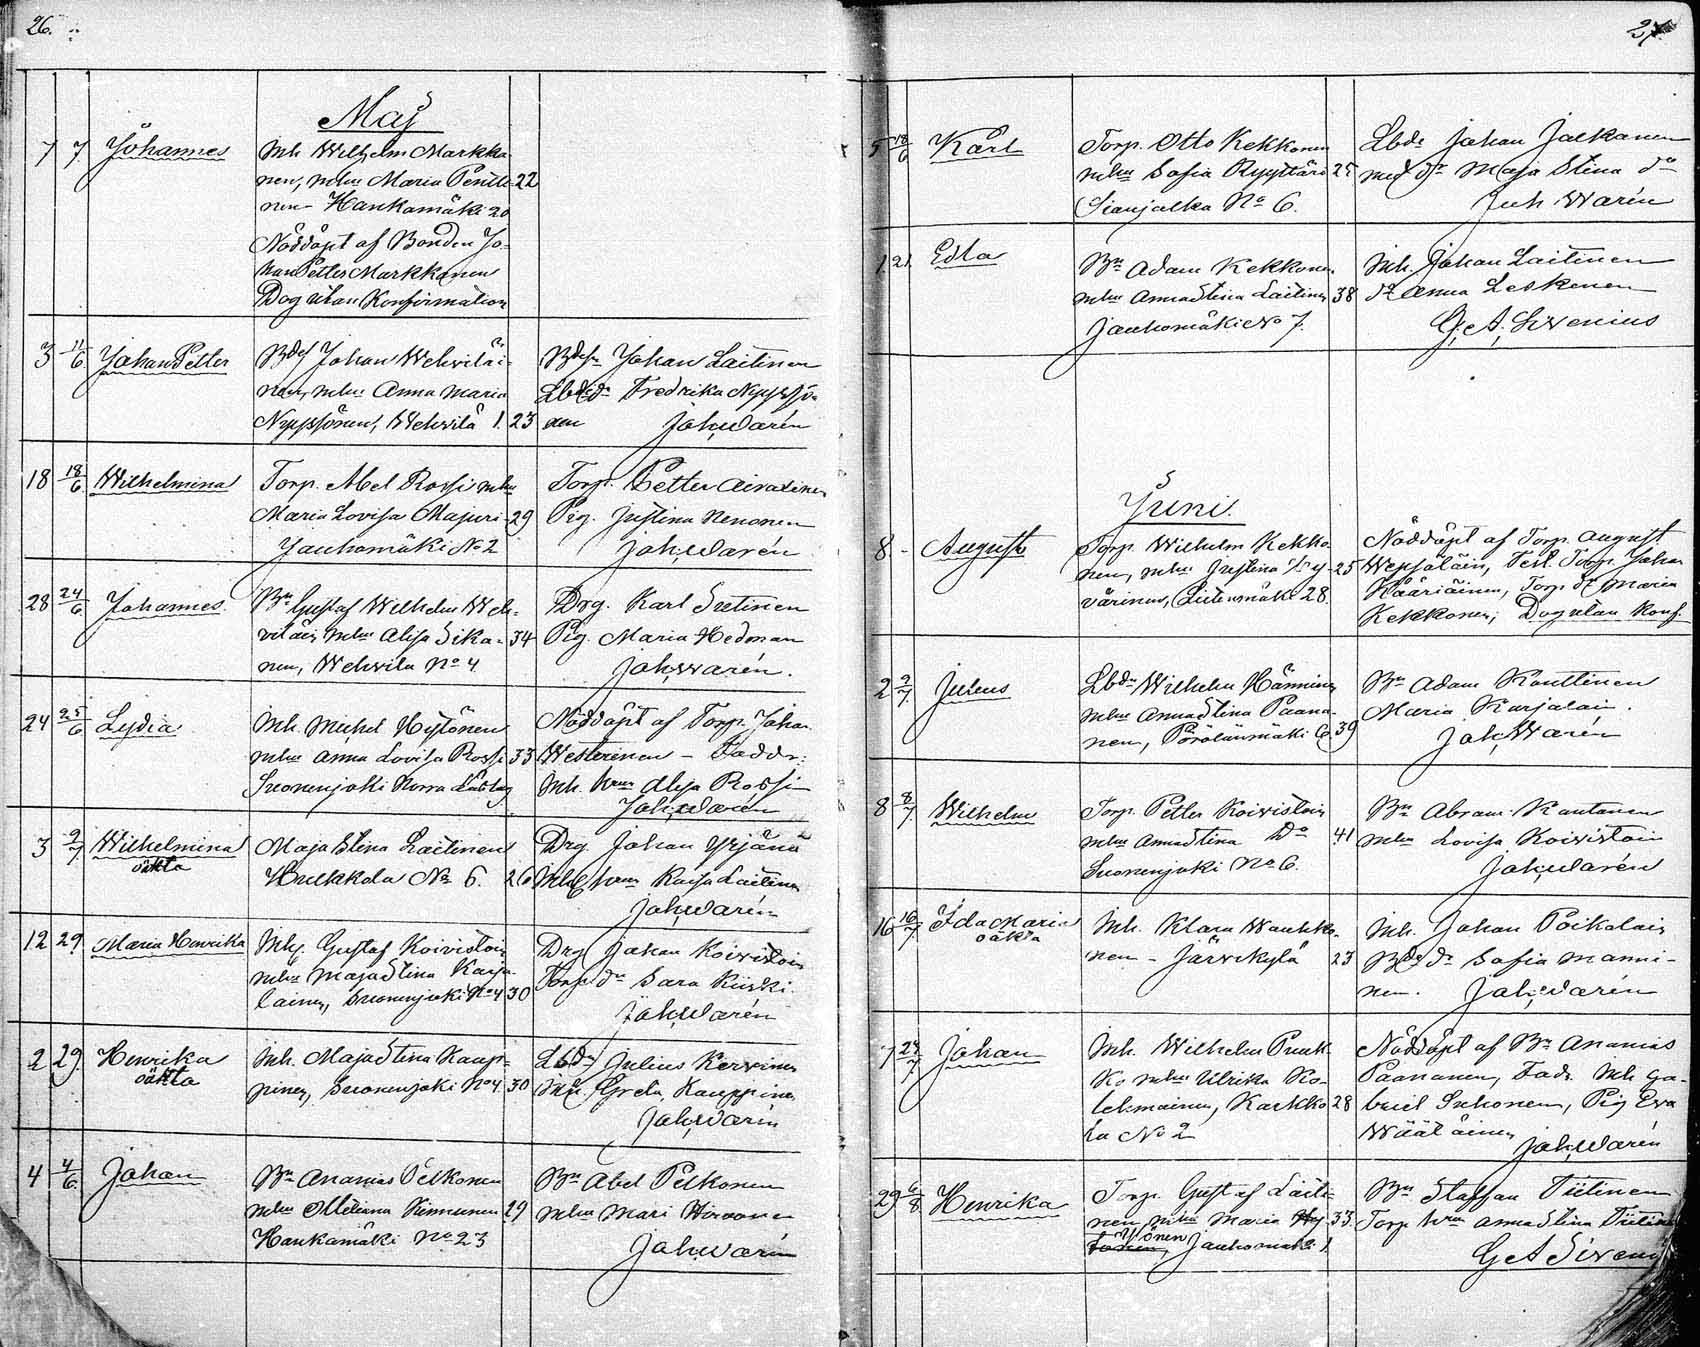 26.
Maj
7 7. Johannes
Inh. Wilhelm Markka-
nen, mhu Maria Pentti- 22
nen Hankamäki 20
Nöddöpt af Bonden Jo-
han Petter Markkanen
Dog utan Konfirmation
3 11/6 Johan Petter
Bdes Johan Wehviläi-
nen, mhu Anna Maria
Nyyssönen, Wehvilä 1. 23
Bdesn Johan Laitinen
Lbdesdr Fredrika Nyyssö-
nen Joh. Warén
18 18/6 Wilhelmina
Torp. Abel Rossi mhu
Maria Lovisa Majuri 29
Jauhomäki No 2
Torp. Petter
Pig. Justina Nenonen
Joh. Warén
28 24/6 Johannes.
Bn Gustaf Wilhelm Weh-
viläin, mhu Alisa Sika- 34
nen, Wehvilä No 4
Drg. Karl Tiitinen
Pig. Maria Hedman
Joh. Warén.
24 25/6 Lydia
Inh. Michel Hytönen
mhu Anna Lovisa Rossi 33
Suonenjoki Norra
Nöddöpt af Torp. Johan
Westerinen - Faddr:
Inh. hru Alisa Rossi
Joh. Warén
3 2/7 Wilhelmina
oäkta
Maja Stina Laitinen
Kukkola No 6. 26
Drg. Johan Yrjänä
Inh. hru Kaisa Laitinen
Joh. Warén
12 29. Maria Henrika
Inhg. Gustaf Koivistoin
mhu Maja Stina Karja-
lainen, Suonenjoki No 4 30
Drg Johan Koivistoin
Torp. dr Sara Kiiski
Joh. Warén
2 29. Henrika
oäkta
Inh. Maja Stina Kaup-
pinen, Suonenjoki No 4. 30
Lbdn Julius Kervinen
Inh. Greta Kauppinen
Joh. Warén
4 4/6. Johan
Bn Ananias Pelkonen
mhu Kinnunen 29
Hankamäki No 23
Bn Abel Pelkonen
mhu Mari Hirvonen
Joh. Warén
27.
5 18/6 Karl
Torp. Otto Kekkonen
mhu Sofia Ryyttäri 25
Sianjalka No 6.
Lbdn Johan Jalkanen
med dr Maja Stina do
Joh. Warén
1. 21. Edla
Bn Adam Kekkonen
mhu Anna Stina Laitinen 38
Jauhomäki No 7.
Inh. Johan Laitinen
dr Anna Leskinen
G. A. Sivenius
Juni.
8 - August
Torp. Wilhelm Kekko-
nen, mhu Justina 25
värinen, Liitenmäki 28.
Nöddöpt af Torp. August
Wepsäläin, Test. Torp. Johan
Kääriäinen, Torp. dr Maria
Kekkonen; Dog utan konf.
2 2/7. Julius
Lbdn Wilhelm Hänninen
mhu Anna Stina Paana-
nen, Pörölänmäki 6. 39
Bn Adam Konttinen
Maria Karjalain.
Joh. Warén
8 8/7. Wilhelm
Torp. Petter Koivistoin
mhu Anna Stina Do 41
Suonenjoki No 6.
Bn Abram Rautanen
mhu Lovisa Koivistoin
Joh. Warén
16 16/7. Ida Maria
oäkta
Inh. Klara Wauhko-
nen - Järvikylä 23
Inh. Johan Poikolain
Bdesdr Sofia Manni-
nen. Joh. Warén
7 23/7 Johan
Inh. Wilhelm Puuk-
ko mhu Ulrika Ko-
lehmainen, Karkko- 28
la No 2
Nöddöpt af Bn Ananias
Paananen, Fadr. Inh. Ga-
briel Suhonen, Pig Eva
Wäätäinen Joh. Warén
29 6/8. Henrika
Torp. Gustaf Laiti-
nen, mhu Maria Hy- 33.
tönen, Jauhomäki 1.
Bn Staffan Tiitinen
Torp. hru Anna Stina Tiitinen
G A Siveni